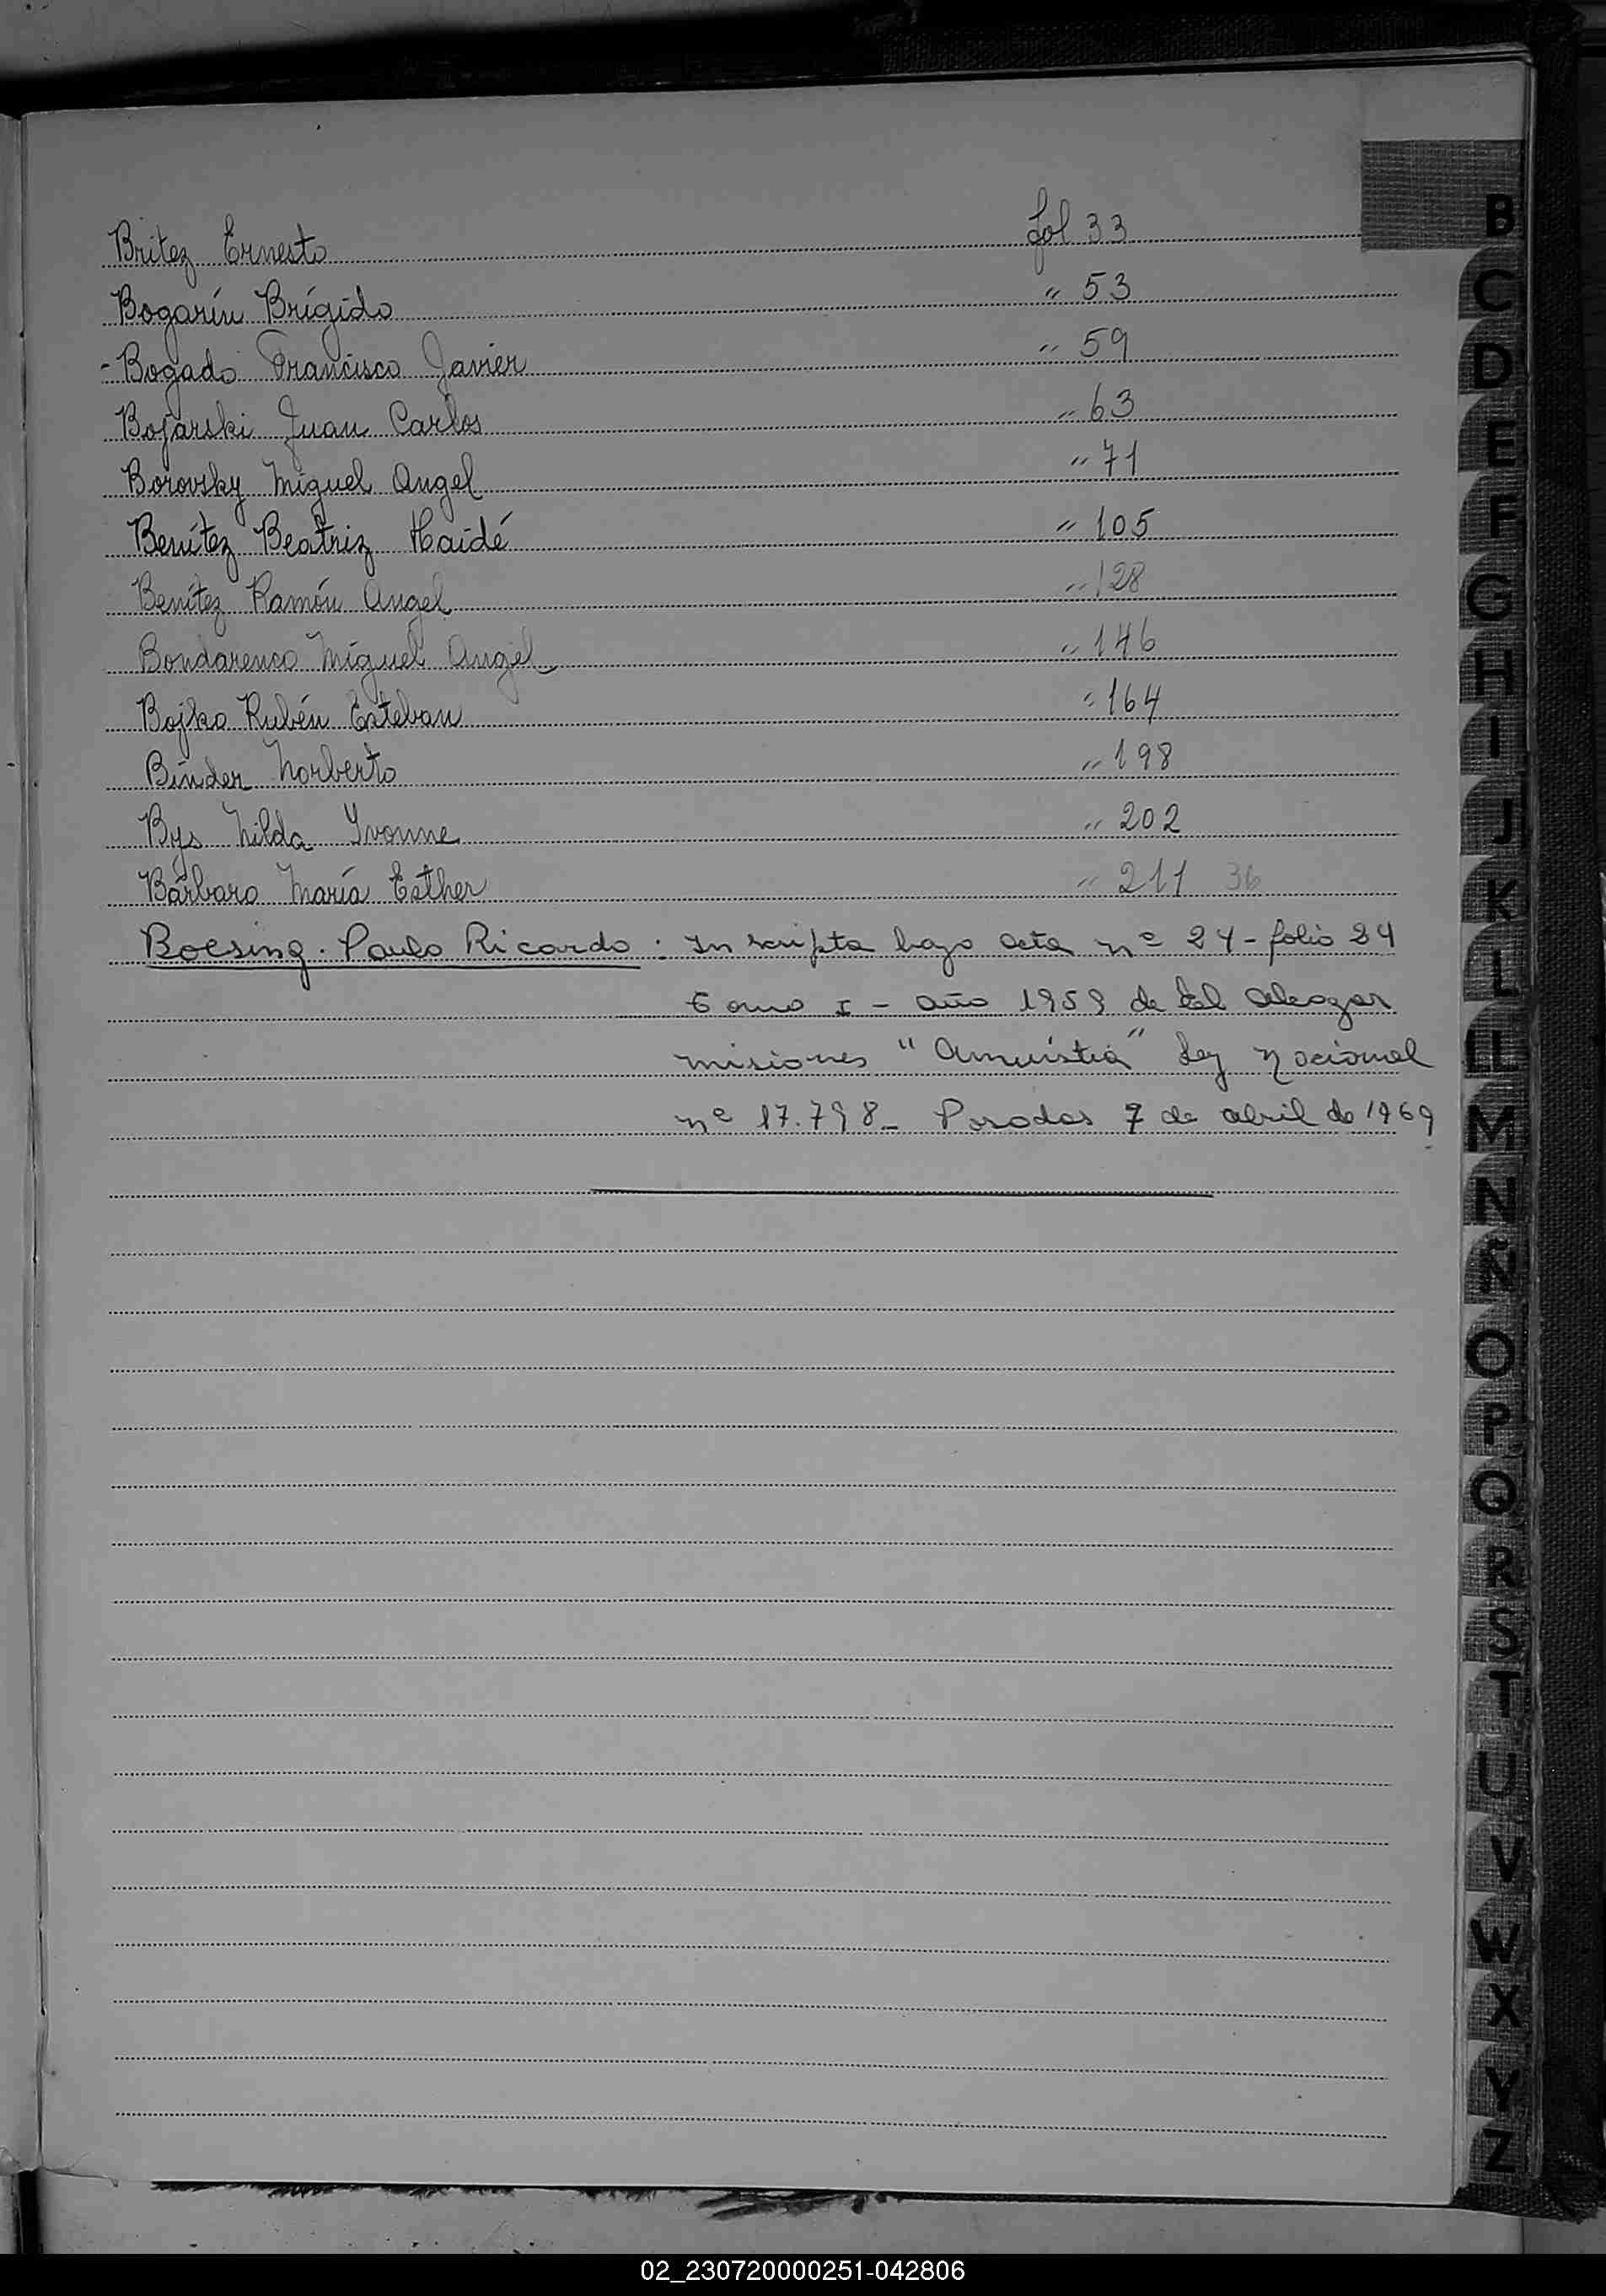 Britez Ernesto fol 33
Bogarín Brígido " 53
- Bogado Francisco Javier " 59
Bojarski Juan Carlos " 63
Borovsky Miguel Angel " 71
Benítez Beatriz Haidé " 105
Benítez Ramón Angel " 128
Bondarenco Miguel Angel " 146
Bojko Rubén Esteban " 164
Binder Norberto " 198
Bys Nilda Yvonne " 202
Bárbaro María Esther " 211 36
Boesing. Paulo Ricardo : Inscripta bajo acta nº 24 - folio 24
Tomo I - año 1959 de El Alcazar
misiones "Amnistia" Ley Nacional
nº 17.798 - Posadas 7 de abril de 1969
B
C
D
E
F
G
H
I
J
K
L
LL
M
N
Ñ
O
P
Q
R
S
T
U
V
W
X
Y
Z
02_230720000251-042806